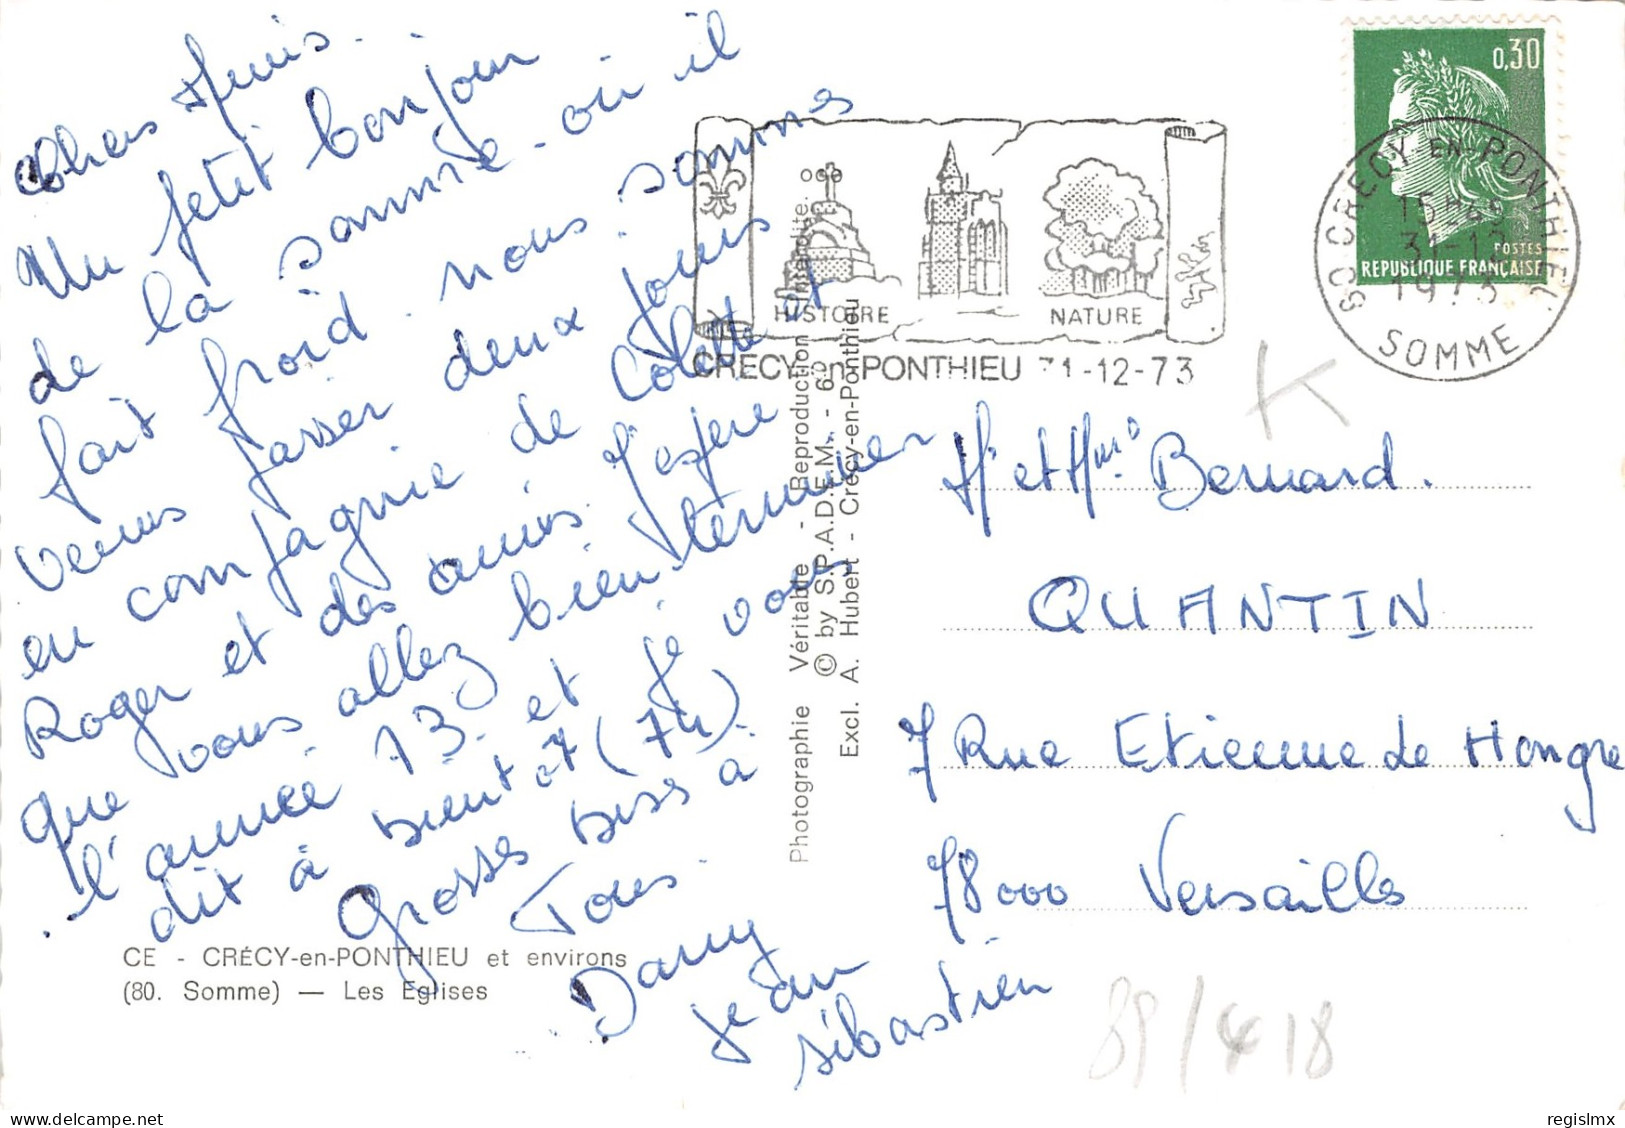 Chers Amis.
Un petit bonjour
de la somme. où il
fait froid. nous sommes
venus passer deux jours
en compagnie de Colette et
Roger et des amis. J'espère
que vous allez bien terminer
l'année 73. et je vous
dit à bientôt (74).
Grosses bises à
Tous.
Dany
Jean
sébastien
CE - CRÉCY-en-PONTHIEU et environs
(80. Somme) — Les Eglises
Photographie Véritable - Reproduction Interdite.
© by S.P.A.D.E.M. - 6°
Excl. A. Hubert - Crécy-en-Ponthieu
HISTOIRE
NATURE
CRECY-en-PONTHIEU 31-12-73
0,30
POSTES
REPUBLIQUE FRANÇAISE
80 CRECY-EN-PONTHIEU
31-12
1973
SOMME
K
Mr et Mme Bernard.
QUANTIN
7 Rue Etienne de Hongre
78000 Versailles
89/418
regislmx